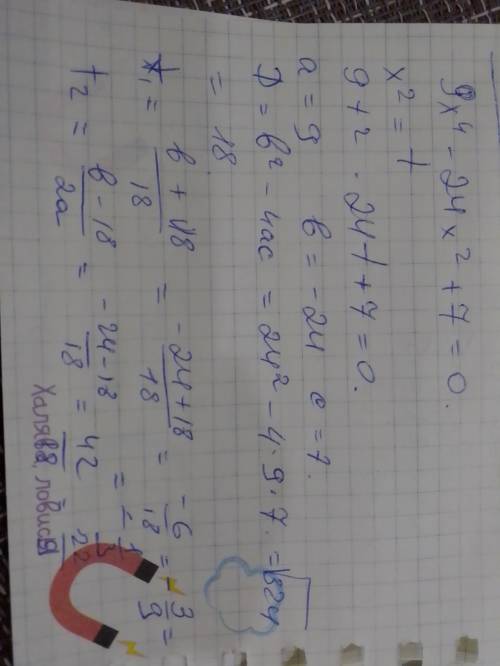 9x⁴ - 24x² + 7 = 0.
x² = t
9t² - 24t + 7 = 0.
a = 9 b = -24 c = 7.
D = b² - 4ac = 24² - 4·9·7. =
= 18
t₁ = b + 18 / 18 = -24+18 / 18 = -6 / 18 = 3 / 9 =
= -1 / 3
t₂ = b - 18 / 2a = -24-18 / 18 = 42
Халява, ловися